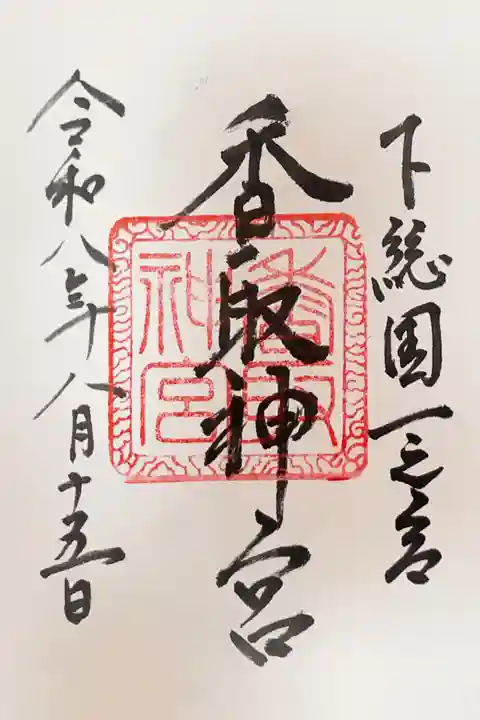 下総国一之宮
香取神宮
香取神宮
令和八年八月十五日